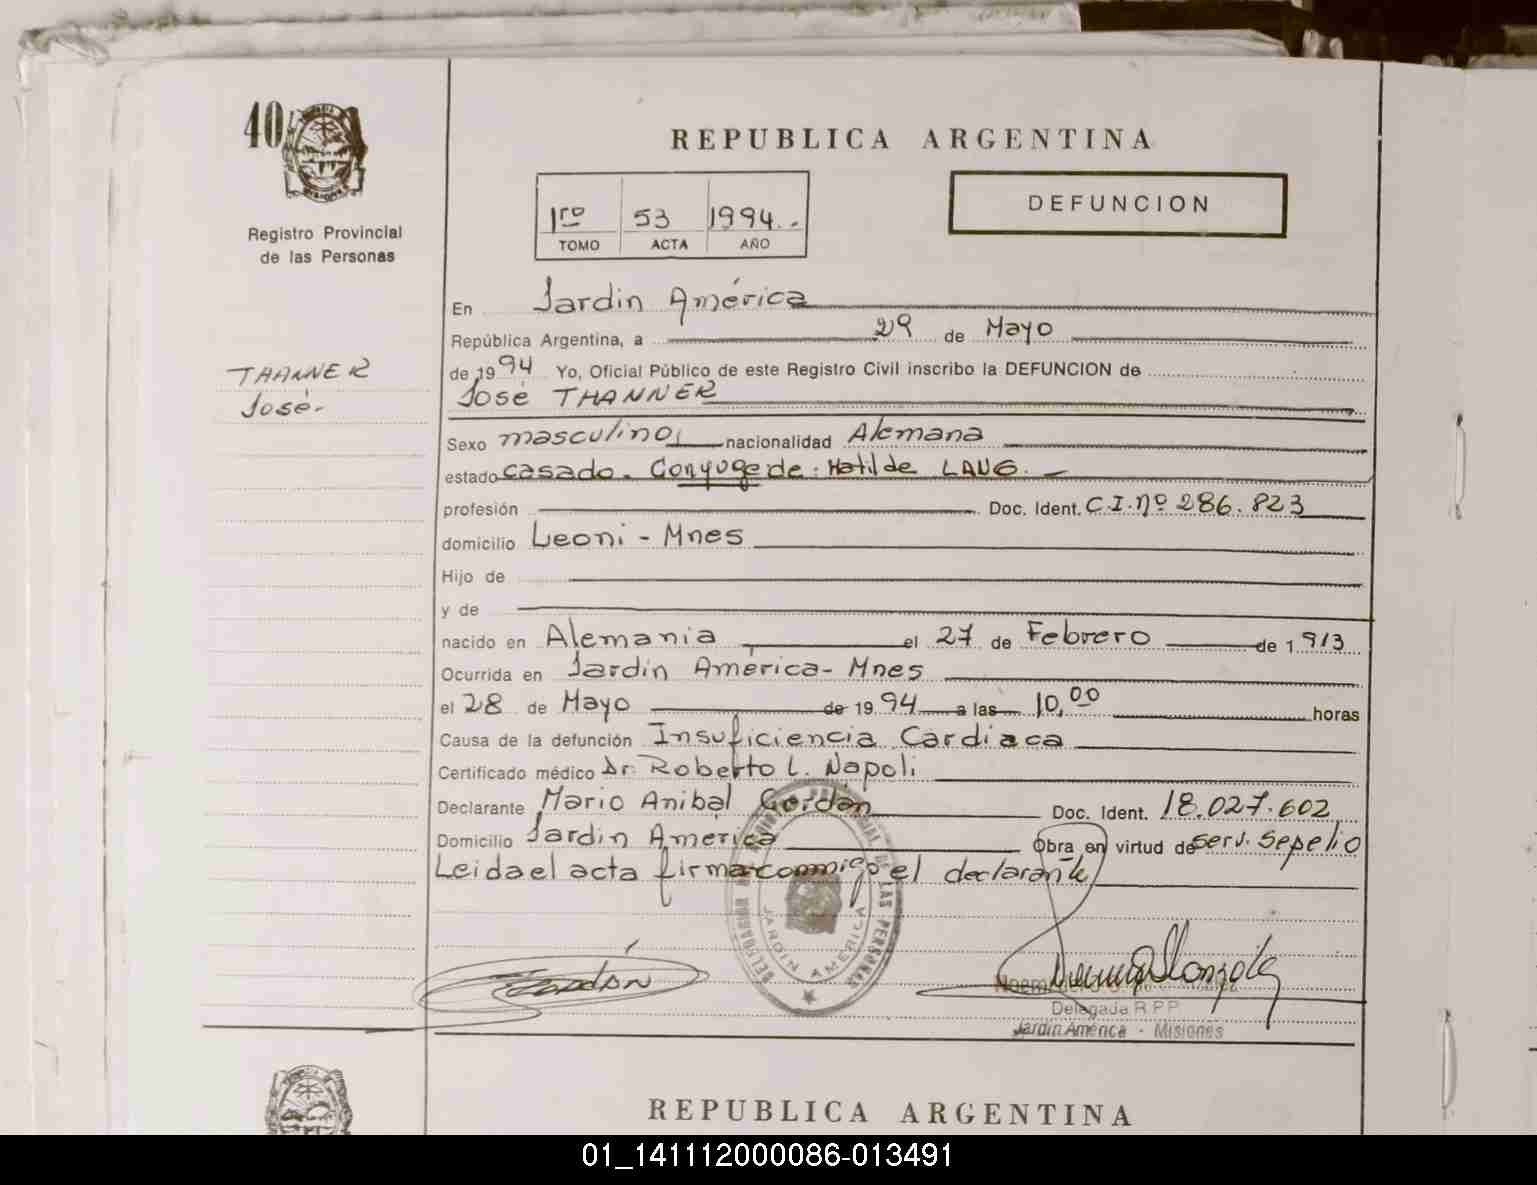 40
REPUBLICA ARGENTINA
1ro 53 1994.-
TOMO ACTA AÑO
DEFUNCION
Registro Provincial
de las Personas
THANNER
José.-
En Jardin América
República Argentina, a 29 de Mayo
de 1994 Yo, Oficial Público de este Registro Civil inscribo la DEFUNCION de
José THANNER
Sexo masculino, nacionalidad Alemana
estado casado. Conyuge de: Matilde LANG.
profesión Doc. Ident. C.I.Nº 286.823
domicilio Leoni - Mnes
Hijo de
y de
nacido en Alemania el 27 de Febrero de 1913
Ocurrida en Jardín América - Mnes
el 28 de Mayo de 1994 a las 10,00 horas
Causa de la defunción Insuficiencia Cardiaca
Certificado médico Dr. Roberto L. Napoli
Declarante Mario Anibal Gordán Doc. Ident. 18.027.602
Domicilio Jardin América Obra en virtud de serv. Sepelio
Leida el acta firma conmigo el declarante
DE LAS PERSONAS
JARDIN AMERICA
Gordán
Delegada R.P.P
Jardín América - Misiones
REPUBLICA ARGENTINA
01_141112000086-013491